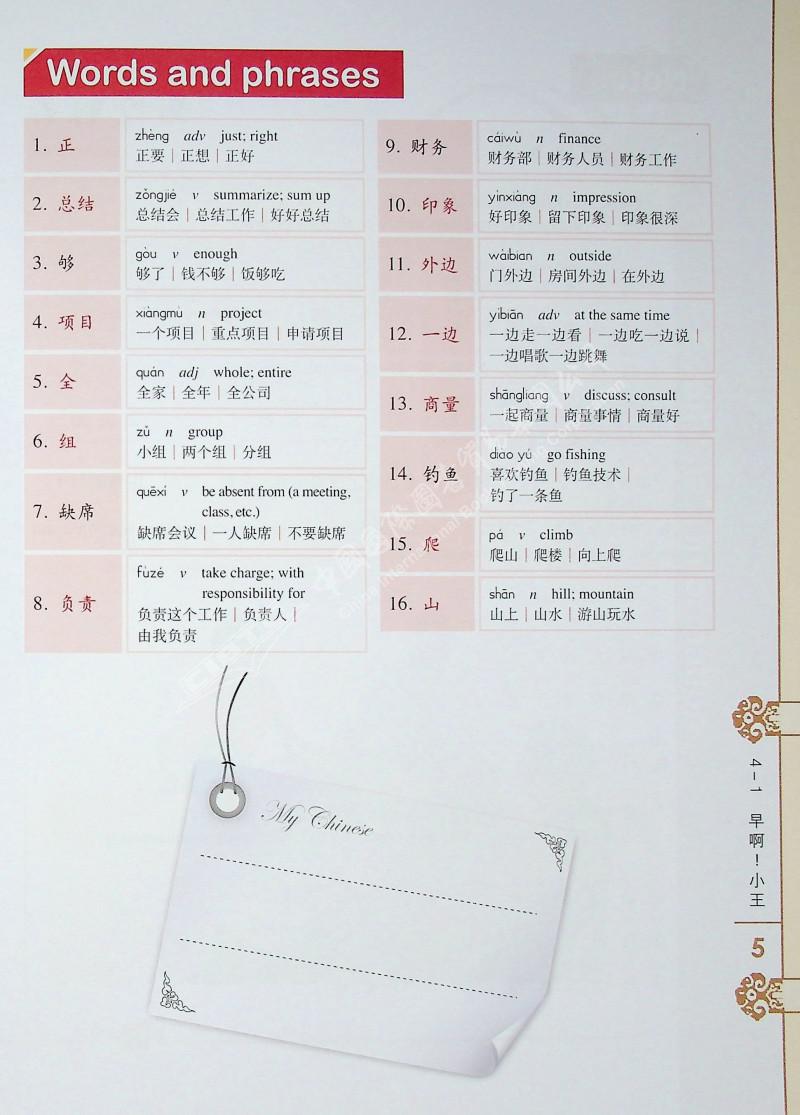 Words and phrases
1. 正
zhèng adv just; right
正要 | 正想 | 正好
2. 总结
zǒngjié v summarize; sum up
总结会 | 总结工作 | 好好总结
3. 够
gòu v enough
够了 | 钱不够 | 饭够吃
4. 项目
xiàngmù n project
一个项目 | 重点项目 | 申请项目
5. 全
quán adj whole; entire
全家 | 全年 | 全公司
6. 组
zǔ n group
小组 | 两个组 | 分组
7. 缺席
quēxí v be absent from (a meeting,
class, etc.)
缺席会议 | 一人缺席 | 不要缺席
8. 负责
fùzé v take charge; with
responsibility for
负责这个工作 | 负责人 |
由我负责
9. 财务
cáiwù n finance
财务部 | 财务人员 | 财务工作
10. 印象
yìnxiàng n impression
好印象 | 留下印象 | 印象很深
11. 外边
wàibian n outside
门外边 | 房间外边 | 在外边
12. 一边
yìbiān adv at the same time
一边走一边看 | 一边吃一边说 |
一边唱歌一边跳舞
13. 商量
shāngliang v discuss; consult
一起商量 | 商量事情 | 商量好
14. 钓鱼
diào yú go fishing
喜欢钓鱼 | 钓鱼技术 |
钓了一条鱼
15. 爬
pá v climb
爬山 | 爬楼 | 向上爬
16. 山
shān n hill; mountain
山上 | 山水 | 游山玩水
My Chinese
4-1 早啊！小王
5